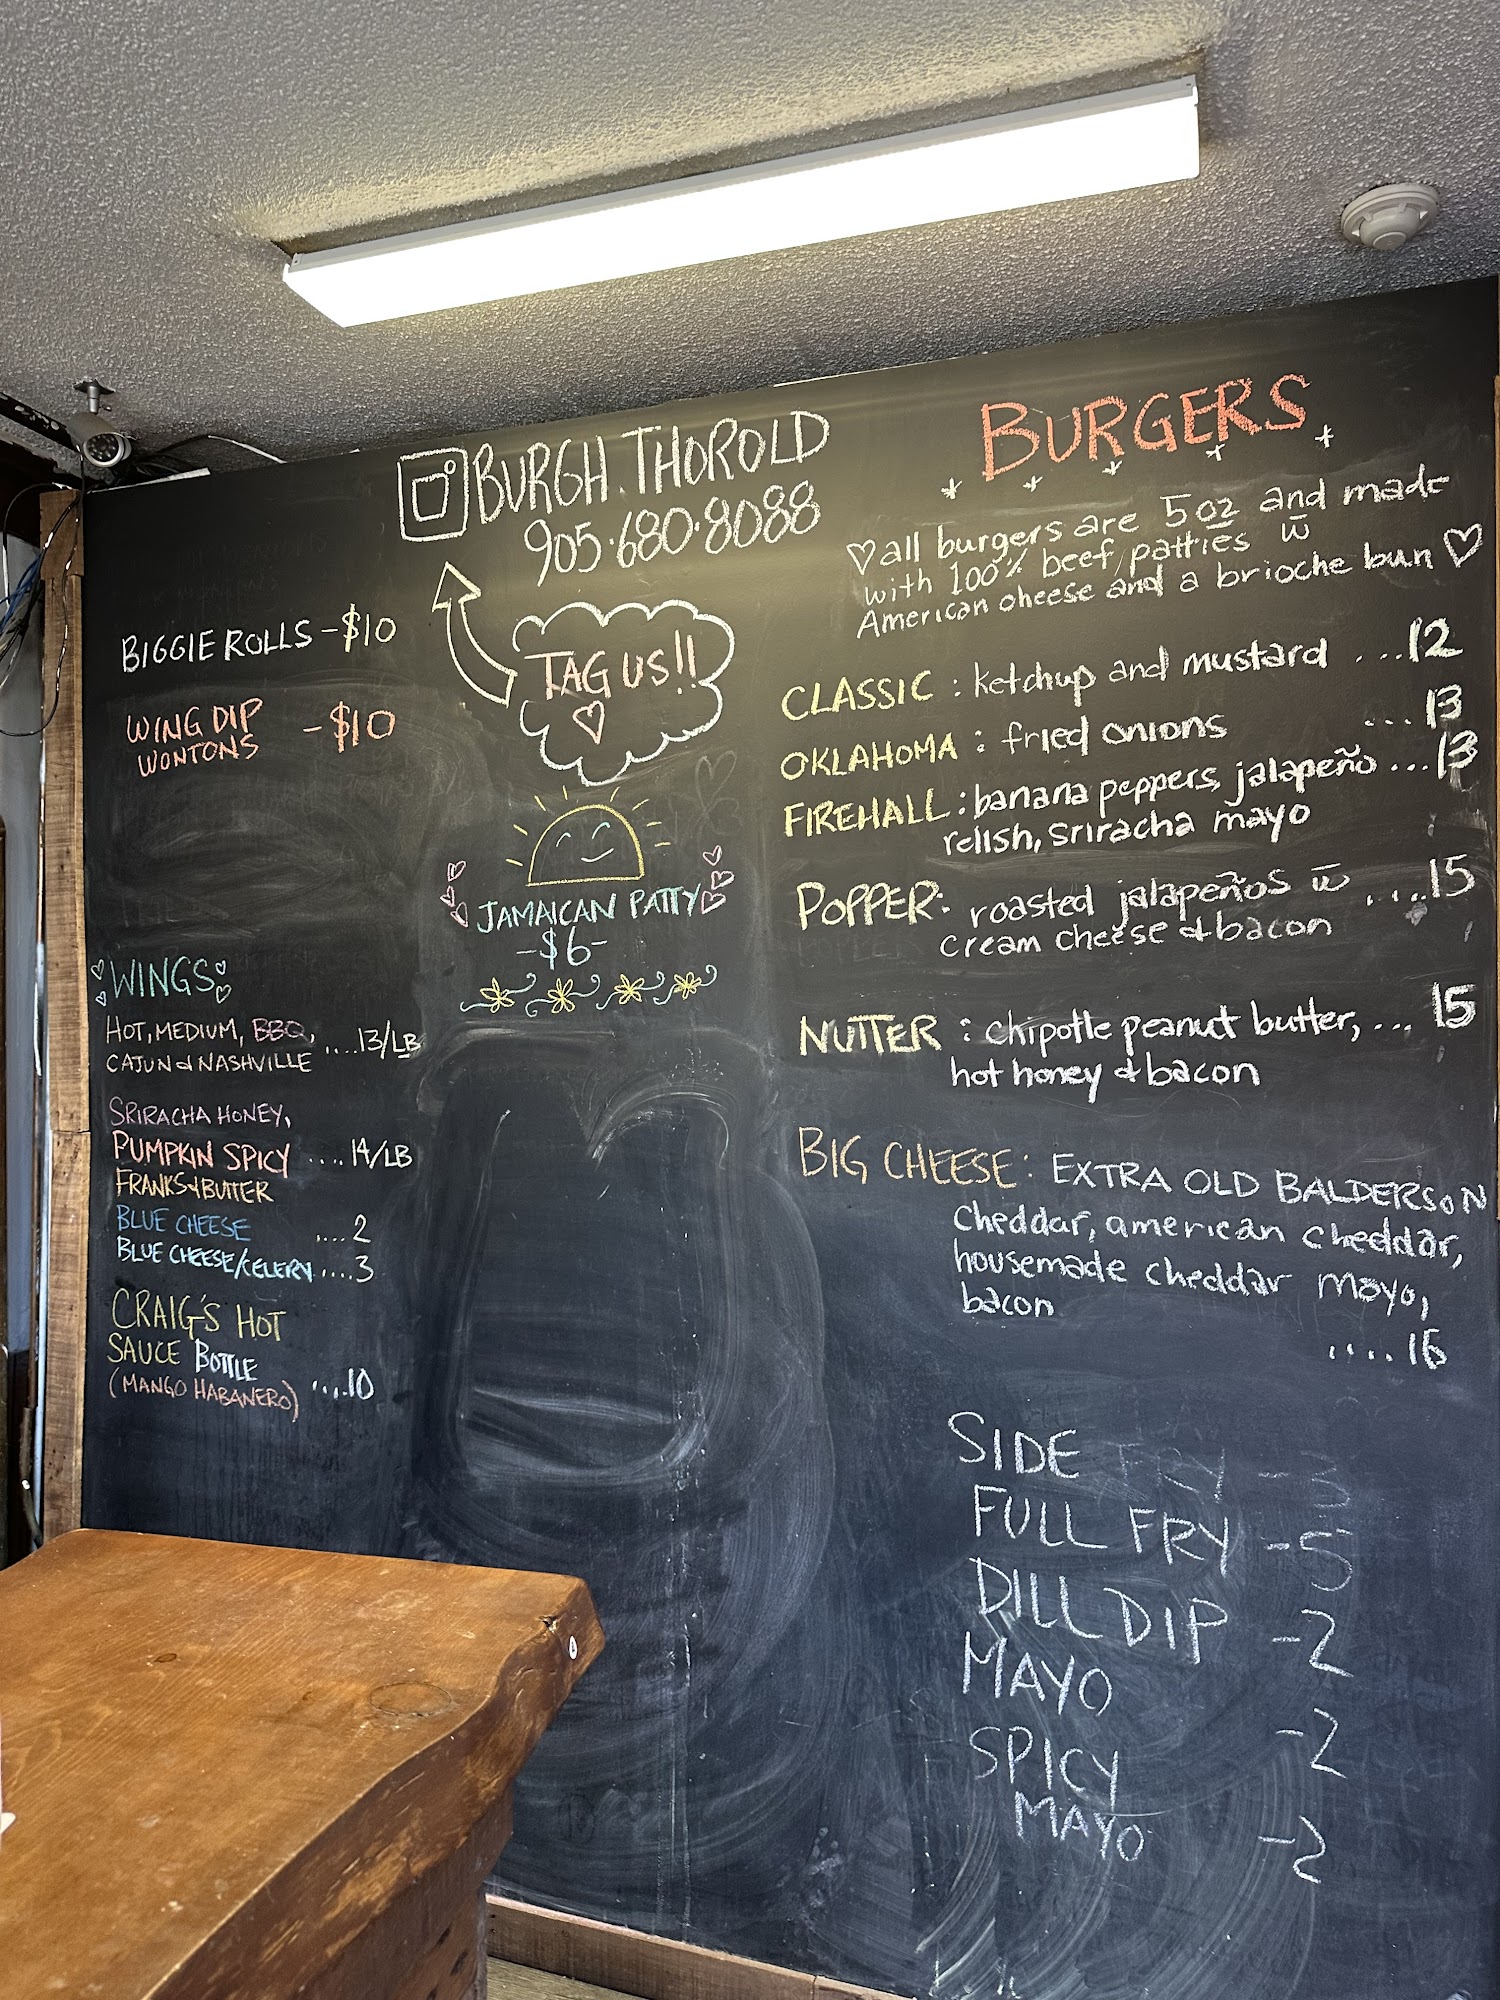 BURGH.THOROLD
905·680·8088
TAG US!!
BIGGIE ROLLS - $10
WING DIP - $10
WONTONS
JAMAICAN PATTY
-$6-
WINGS
HOT, MEDIUM, BBQ,
CAJUN & NASHVILLE ....13/LB
SRIRACHA HONEY,
PUMPKIN SPICY ....14/LB
FRANKS & BUTTER
BLUE CHEESE ....2
BLUE CHEESE/CELERY ....3
CRAIG'S HOT
SAUCE BOTTLE
(MANGO HABANERO) ....10
BURGERS
♡ all burgers are 5oz and made
with 100% beef patties w̄
American cheese and a brioche bun ♡
CLASSIC : ketchup and mustard ...12
OKLAHOMA : fried onions ...13
FIREHALL : banana peppers, jalapeño ...13
relish, sriracha mayo
POPPER: roasted jalapeños w̄ ....15
cream cheese & bacon
NUTTER : chipotle peanut butter, ... 15
hot honey & bacon
BIG CHEESE: EXTRA OLD BALDERSON
cheddar, american cheddar,
housemade cheddar mayo,
bacon
....16
SIDE FRY -3
FULL FRY -5
DILL DIP -2
MAYO -2
SPICY
MAYO -2